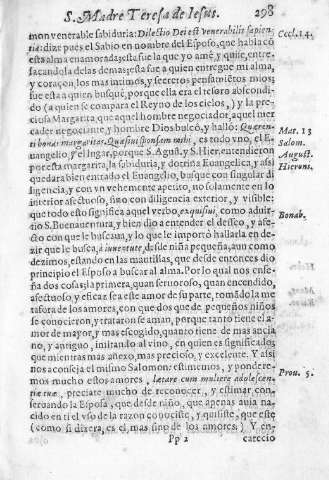 S. Madre Teresa de Iesus. 298
mon venerable sabiduria: Dilectio Dei est venerabilis sapien-
tia: dize pues el Sabio en nombre del Esposo, que habla cõ
esta alma enamorada: esta fue la que yo amé, y quise, entre-
sacandola de las demas: esta fue a quien entregue mi alma,
y coraçon, los mas intimos, y secretos pensamiẽtos mios:
fue esta a quien busquè, porque ella era el tesoro abscondi-
do (a quien se compara el Reyno de los cielos,) y la pre-
ciosa Margarita, que aquel hombre negociador, aquel mer
cader negociante, y hombre Dios buscò, y hallò: Quæren-
ti bonas margaritas. Quæsiui sponsam mihi, es todo vno, el E-
uangelio, y el lugar, porque S. Agust. y S. Hier. entendieron
por esta margarita, la sabiduria, y dotrina Euangelica, y assi
quedara bien entrado el Euangelio, busque con singular di
ligencia, y con vn vehemente apetito, no solamente en lo
interior afectuoso, sino con diligencia exterior, y visible:
que todo esto significa aquel verbo, exquisiui, como aduir-
tio S. Buenauentura, y bien dio a entender el desseo, y afe-
cto con que le buscaua, y lo que le importò hallarla en de-
zir que la busca, à iuuentute, desde niña pequeña, aun como
dezimos, estando en las mantillas, que desde entonces dio
principio el Esposo a buscar al alma. Por lo qual nos ense-
ña dos cosas; la primera, quan feruoroso, quan encendido,
afectuoso, y eficaz sea este amor de su parte, tomãdo la me
tafora de los amores, con que dos que de pequeños niños
se conocieron, y trataron se aman, porque tanto tiene el a-
mor de mayor, y mas escogido, quanto tiene de mas ancia
no, y antiguo, imitando al vino, en quien es significado;
que mientras mas añexo, mas precioso, y excelente. Y assi
nos aconseja el mismo Salomon: estimemos, y pondere-
mos mucho estos amores, lætare cum muliere adolescen-
tiæ tuæ, preciate mucho de reconocer, y estimar con-
seruando la Esposa, que desde niño, que apenas auia na-
cido en el vso de la razon conociste, y quisiste, que este
(como si dixera, es el mas fino de los amores.) Y en-
Pp 2 carecio
Eccl. 14.
Mat. 13
Salom.
August.
Hieroni.
Bonab.
Prou. 5.